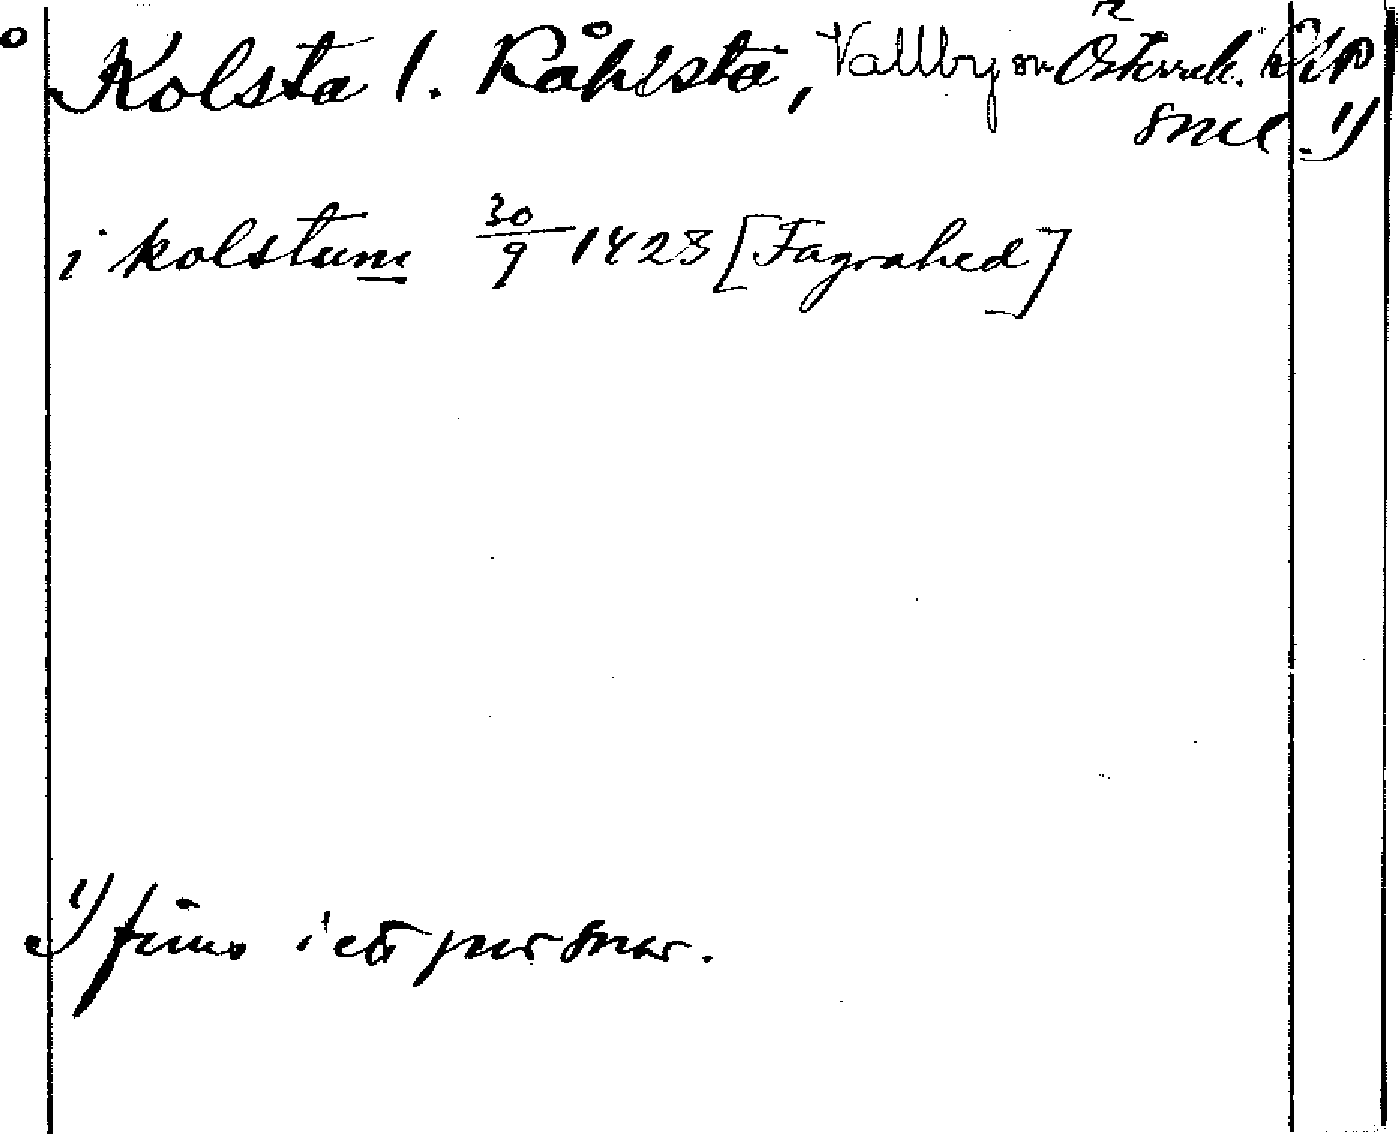 Kolsta l. Råhista, Vallby sn Österrek.
Sml. 1)
i kolstum 30/9 1423 [Fagrahed]
1) finns i ett par Smar.